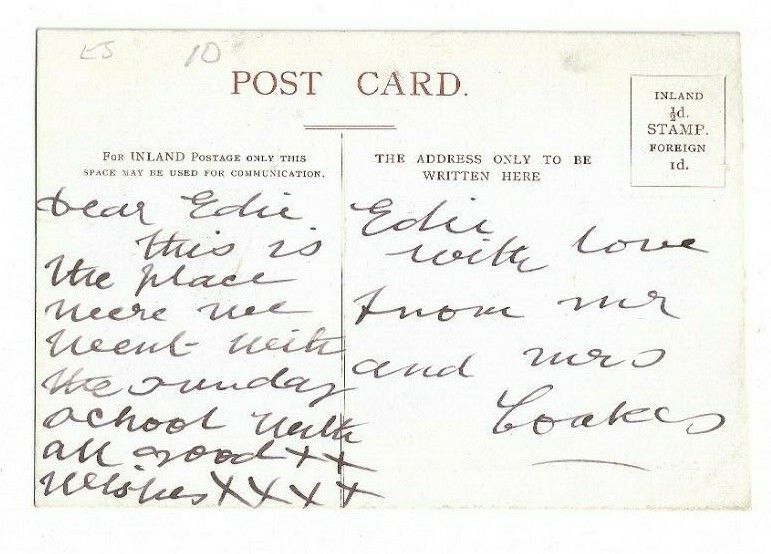 ES 10
POST CARD.
INLAND
½d.
STAMP.
FOREIGN
1d.
FOR INLAND POSTAGE ONLY THIS
SPACE MAY BE USED FOR COMMUNICATION.
THE ADDRESS ONLY TO BE
WRITTEN HERE
Dear Edie
this is
the place
were we
went with
the sunday
school with
all good ++
wishes XXXX+
Edie
with love
from mr
and mrs
Coakes